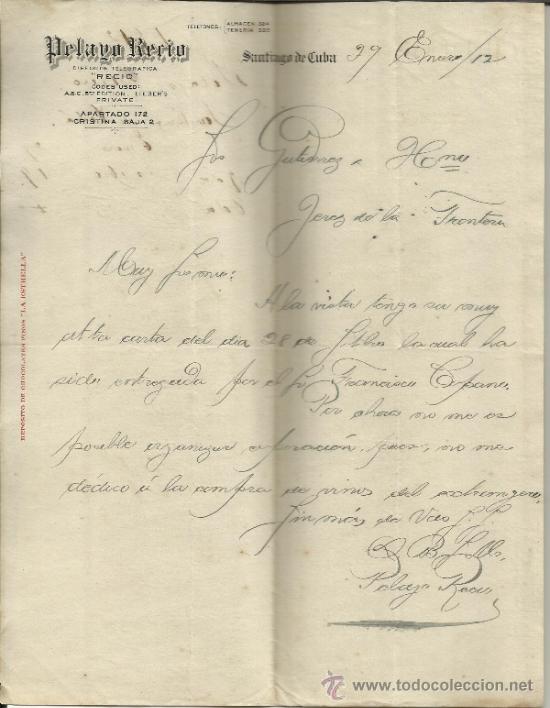 TELEFONOS: ALMACEN 324
TENERIA 325
Pelayo Recio
DIRECCION TELEGRAFICA
"RECIO"
CODES USED:
A.B.C. 5TH EDITION, LIEBER'S
PRIVATE
APARTADO 172
CRISTINA BAJA 2
Santiago de Cuba 29 Enero/12
Gutierrez Hnos
Jerez de la Frontera
Muy Sres mios:
A la vista tengo su muy
atta carta del dia 28 de la cual ha
sido entregada por el Sr Francisco
Por ahora no me es
posible organizar operación, pues, no me
dedico á la compra de vinos del extrangero.
Sin más de Vdes S. S.
Q B S Ms.
Pelayo Recio
DEPOSITO DE CHOCOLATES FINOS "LA ESTRELLA"
www.todocoleccion.net